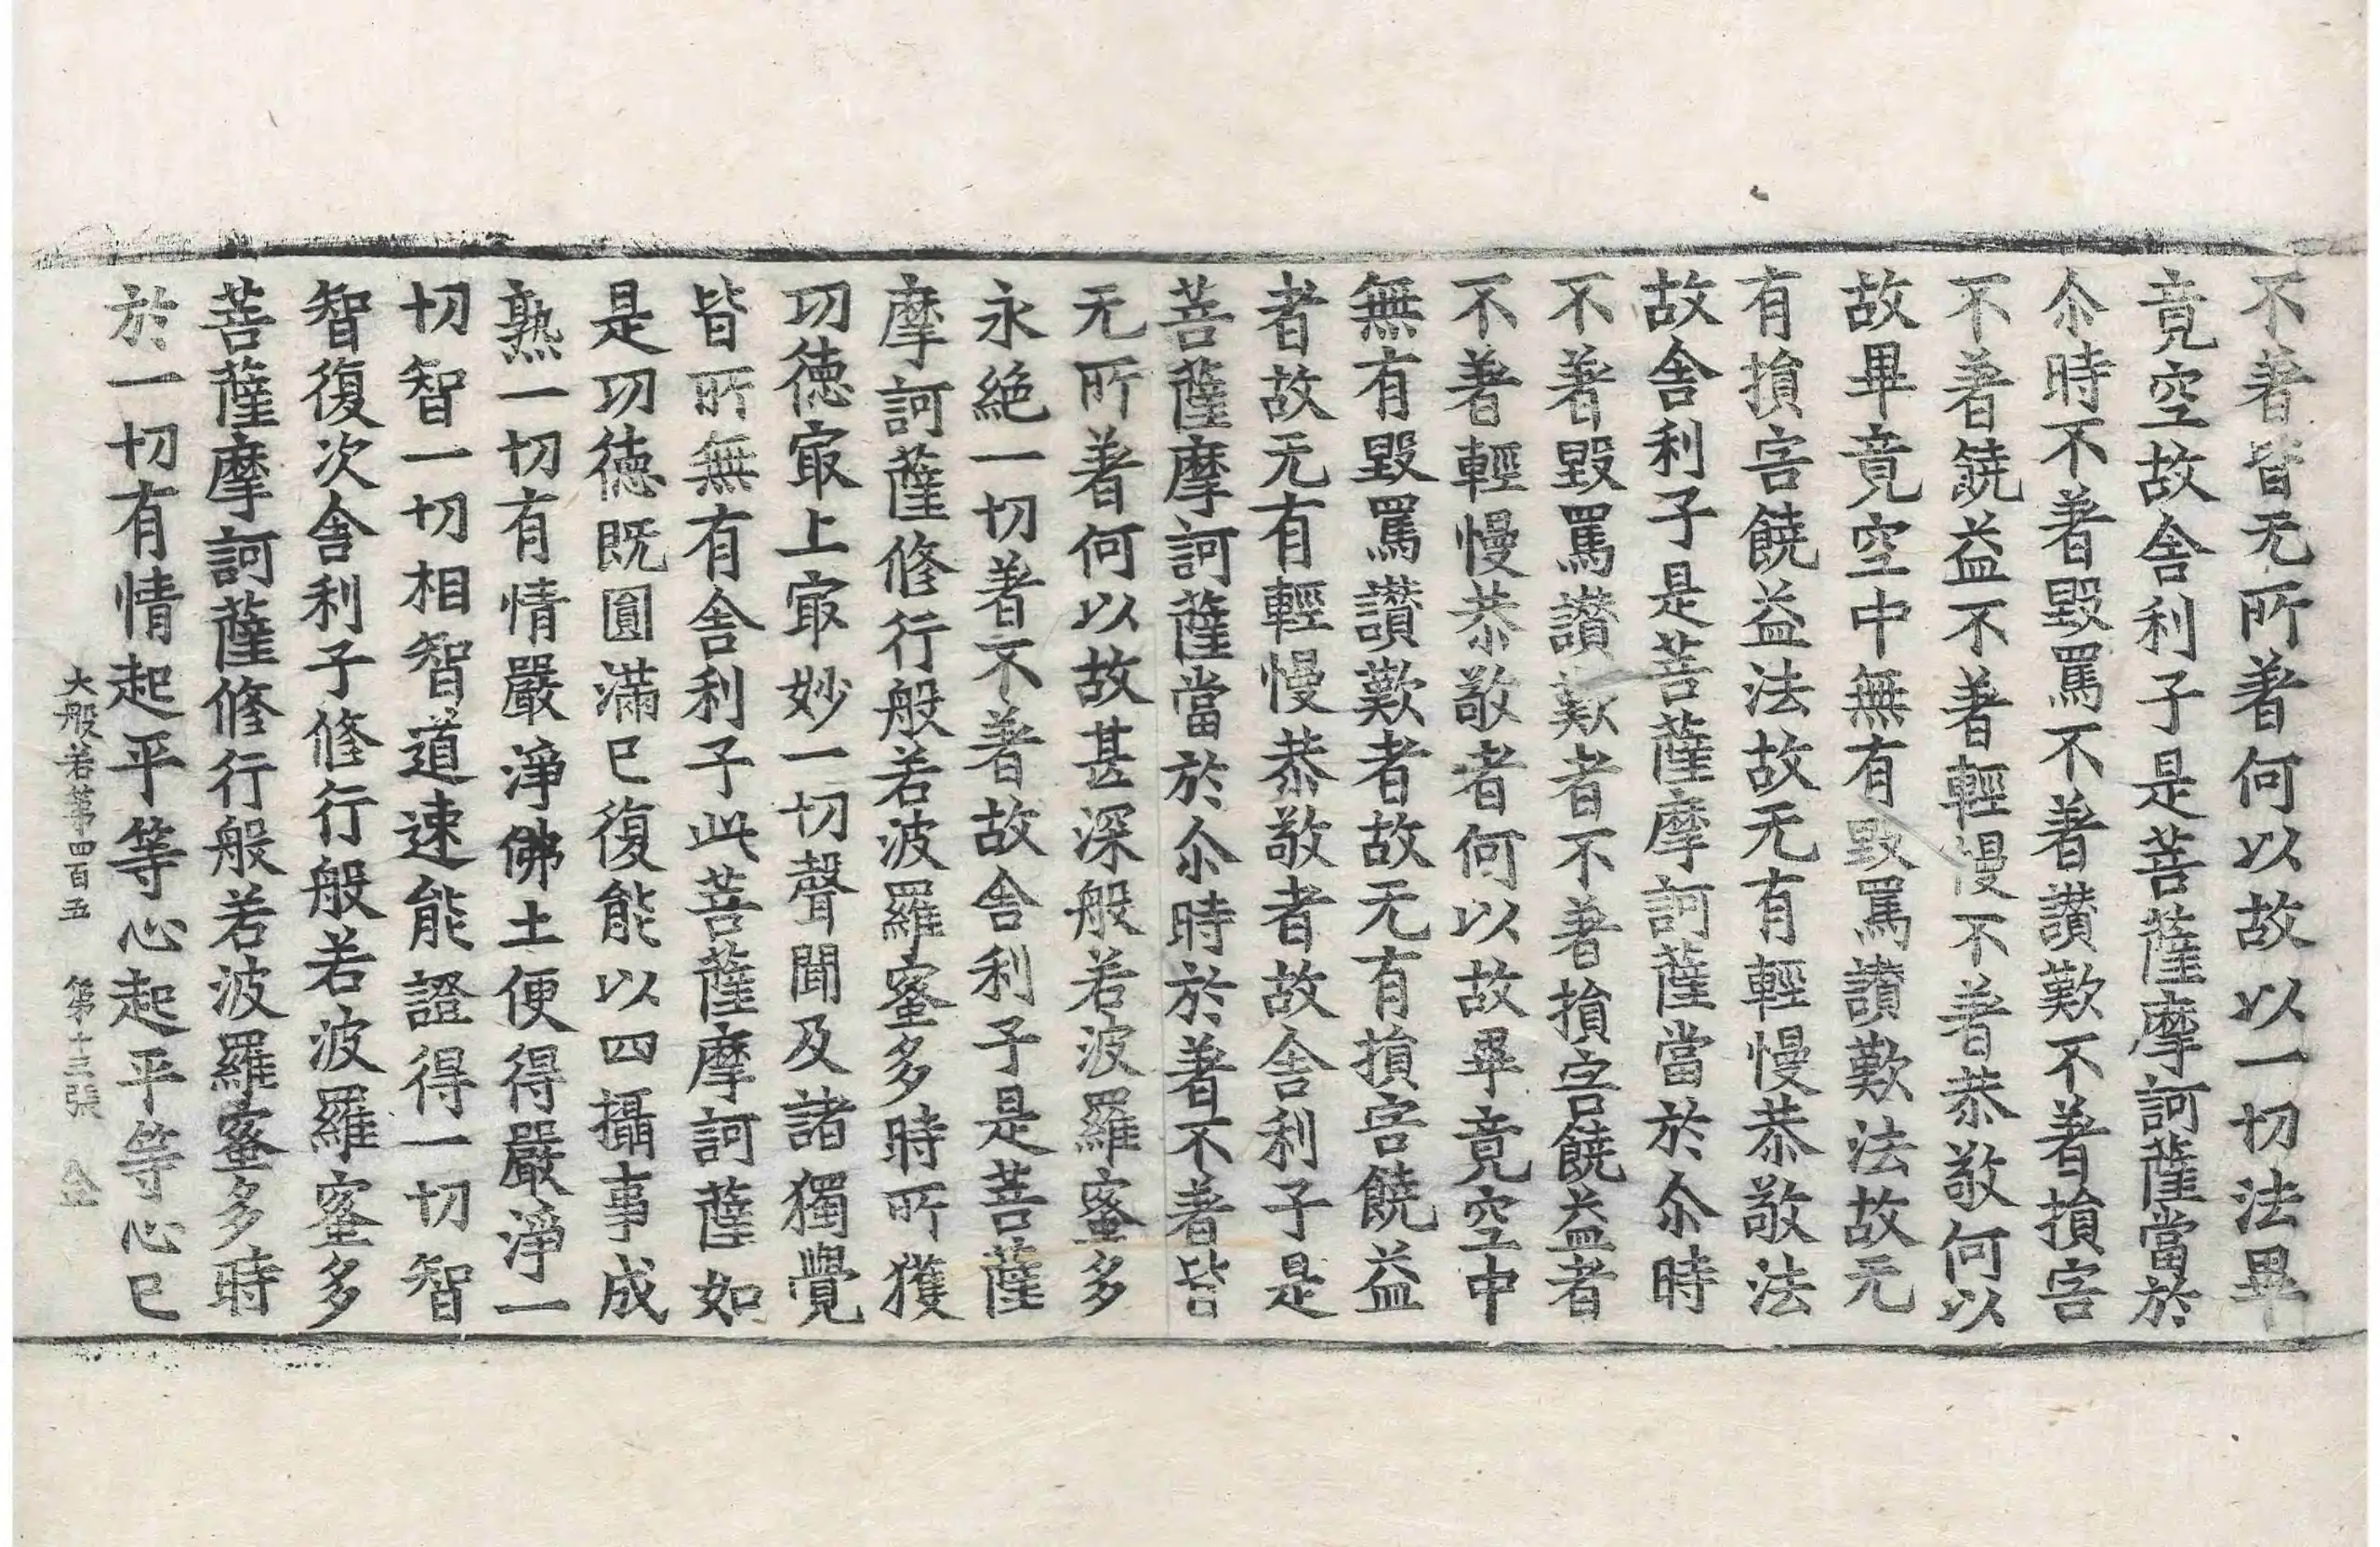 不著皆无所著何以故以一切法畢
竟空故舍利子是菩薩摩訶薩當於
尒時不著毀罵不著讃歎不著損害
不著饒益不著輕慢不著恭敬何以
故畢竟空中無有毀罵讃歎法故无
有損害饒益法故无有輕慢恭敬法
故舍利子是菩薩摩訶薩當於尒時
不著毀罵讃歎者不著損害饒益者
不著輕慢恭敬者何以故畢竟空中
無有毀罵讃歎者故无有損害饒益
者故无有輕慢恭敬者故舍利子是
菩薩摩訶薩當於尒時於著不著皆
无所著何以故甚深般若波羅蜜多
永絶一切著不著故舍利子是菩薩
摩訶薩修行般若波羅蜜多時所獲
功徳冣上冣妙一切聲聞及諸獨覺
皆所無有舍利子此菩薩摩訶薩如
是功徳既圓滿已復能以四攝事成
熟一切有情嚴淨佛土便得嚴淨一
切智一切相智道速能證得一切智
智復次舍利子修行般若波羅蜜多
菩薩摩訶薩修行般若波羅蜜多時
於一切有情起平等心起平等心已
大般若第四百五 第十三張